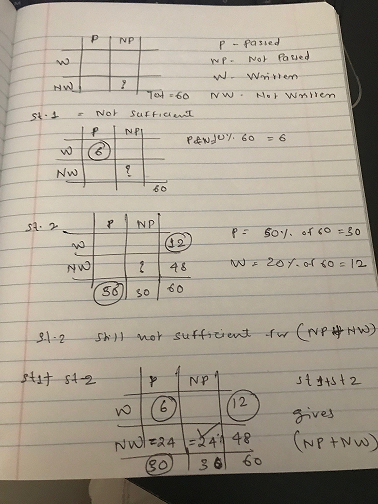 P NP
W
NW ?
Tot = 60
P - Passed
NP - Not Passed
W - Written
NW - Not Written
St. 1 = Not Sufficient
P NP
W 6
NW ?
60
10% 60 = 6
St. 2
P NP
W 12
NW ? 48
30 60
P = 50% of 60 = 30
W = 20% of 60 = 12
St. 2 still not sufficient for (NP NW)
St1+ St-2
P NP
W 6 12
NW = 24 = 24 48
30 30 60
St 1+St 2
gives
(NP + NW)